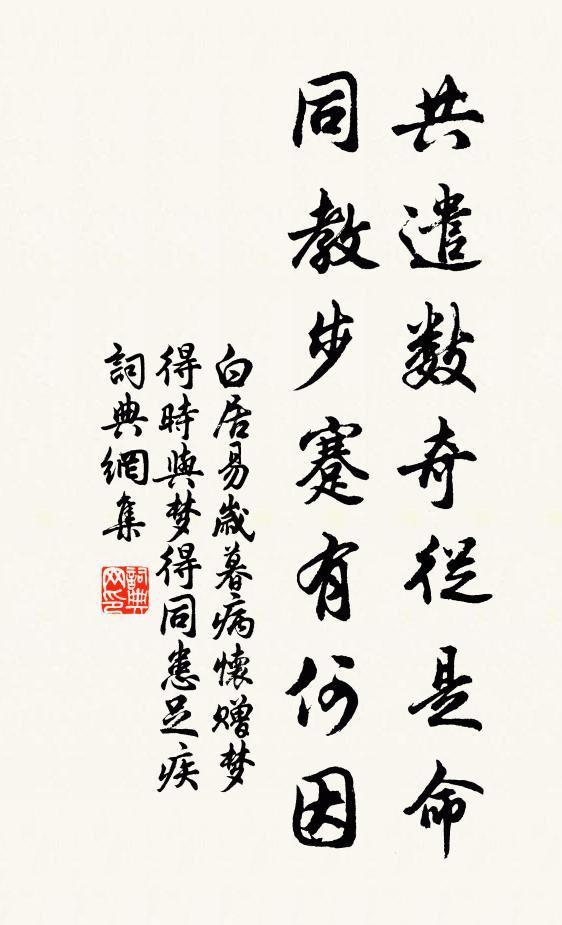 共遣數奇從是命
同教步蹇有何因
白居易歲暮病懷贈梦
得時與梦得同患足疾
詞典網集
詞典网印